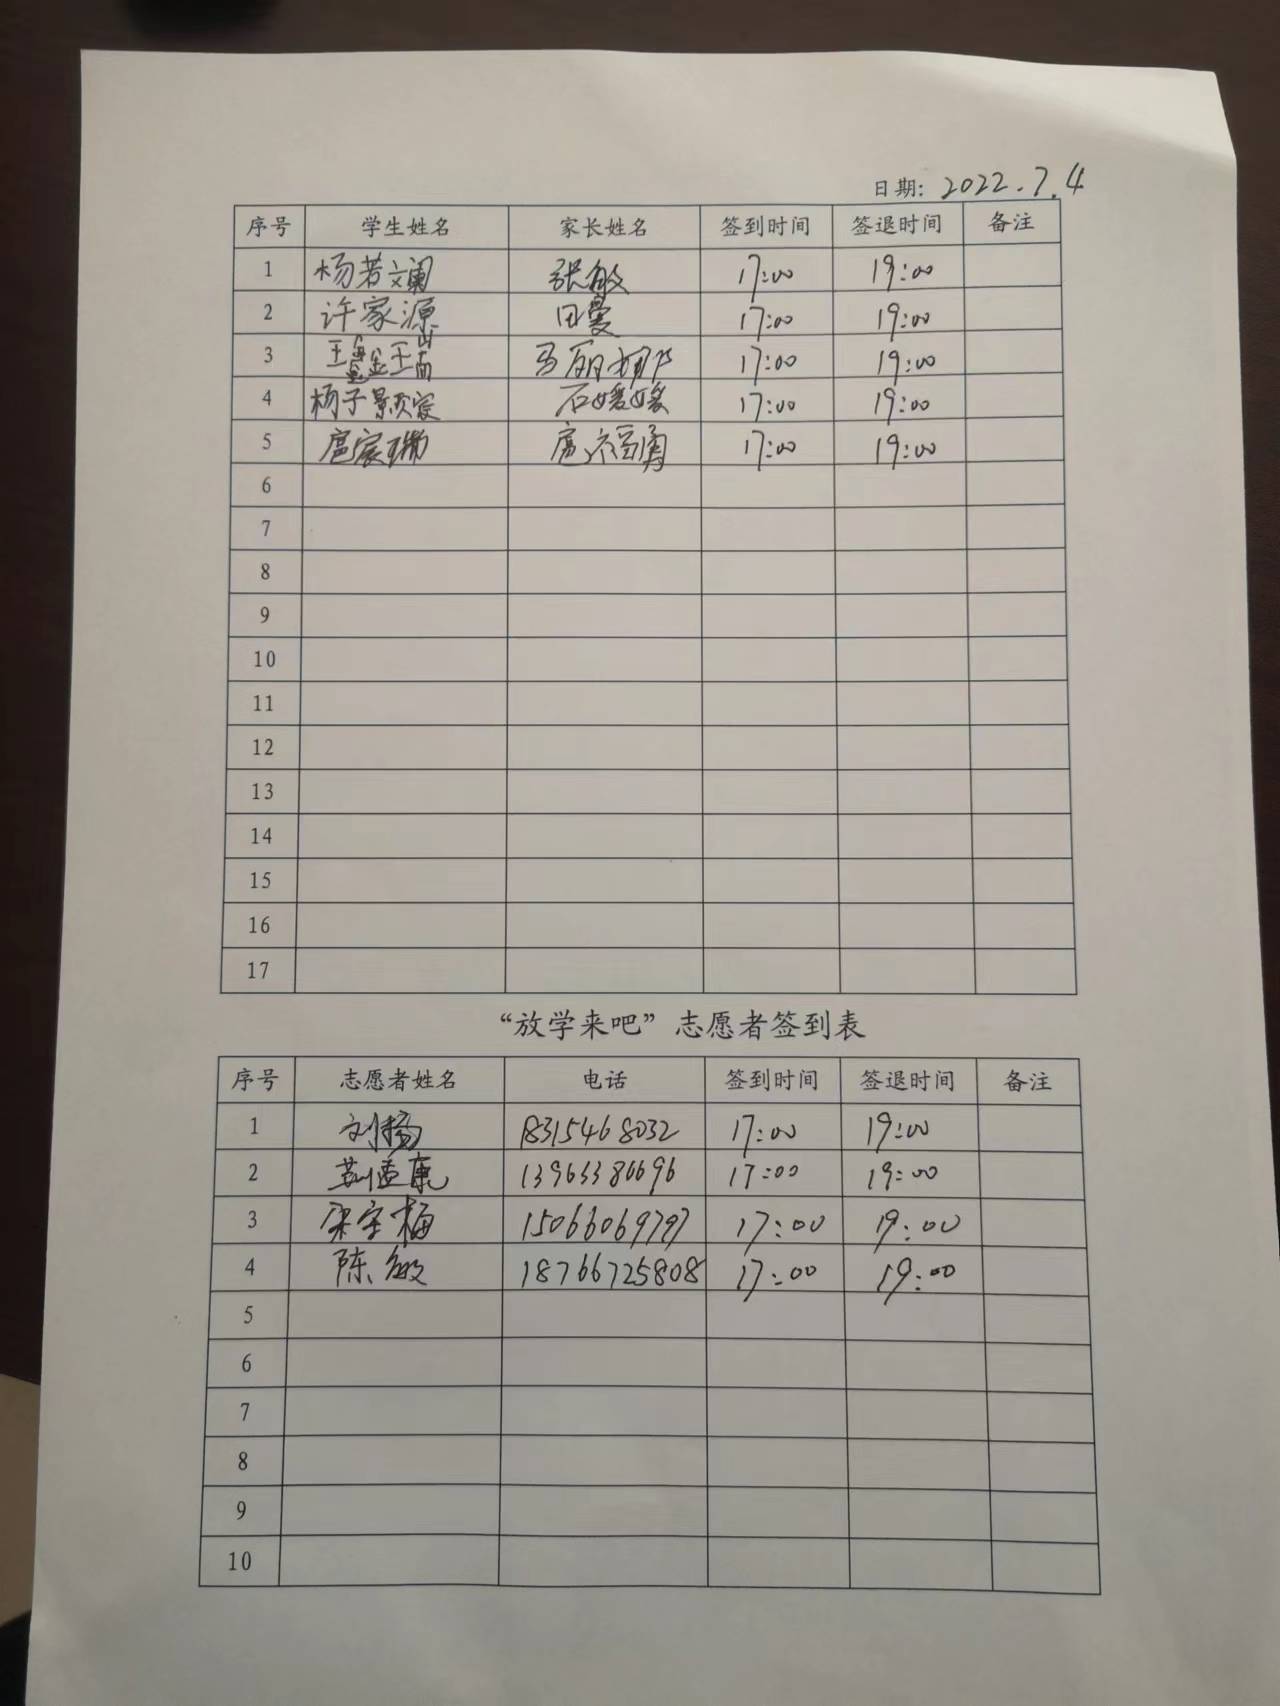 日期: 2022.7.4
序号 学生姓名 家长姓名 签到时间 签退时间 备注
1 杨若斓 张敏 17:00 19:00
2 许家源 田蔓 17:00 19:00
3 17:00 19:00
4 杨子颢宸 石媛媛 17:00 19:00
5 扈宸瑞 扈福勇 17:00 19:00
6
7
8
9
10
11
12
13
14
15
16
17
“放学来吧”志愿者签到表
序号 志愿者姓名 电话 签到时间 签退时间 备注
1 刘杨 18315468032 17:00 19:00
2 17:00 19:00
3 梁宝梅 15066069797 17:00 19:00
4 陈敏 18766725808 17:00 19:00
5
6
7
8
9
10